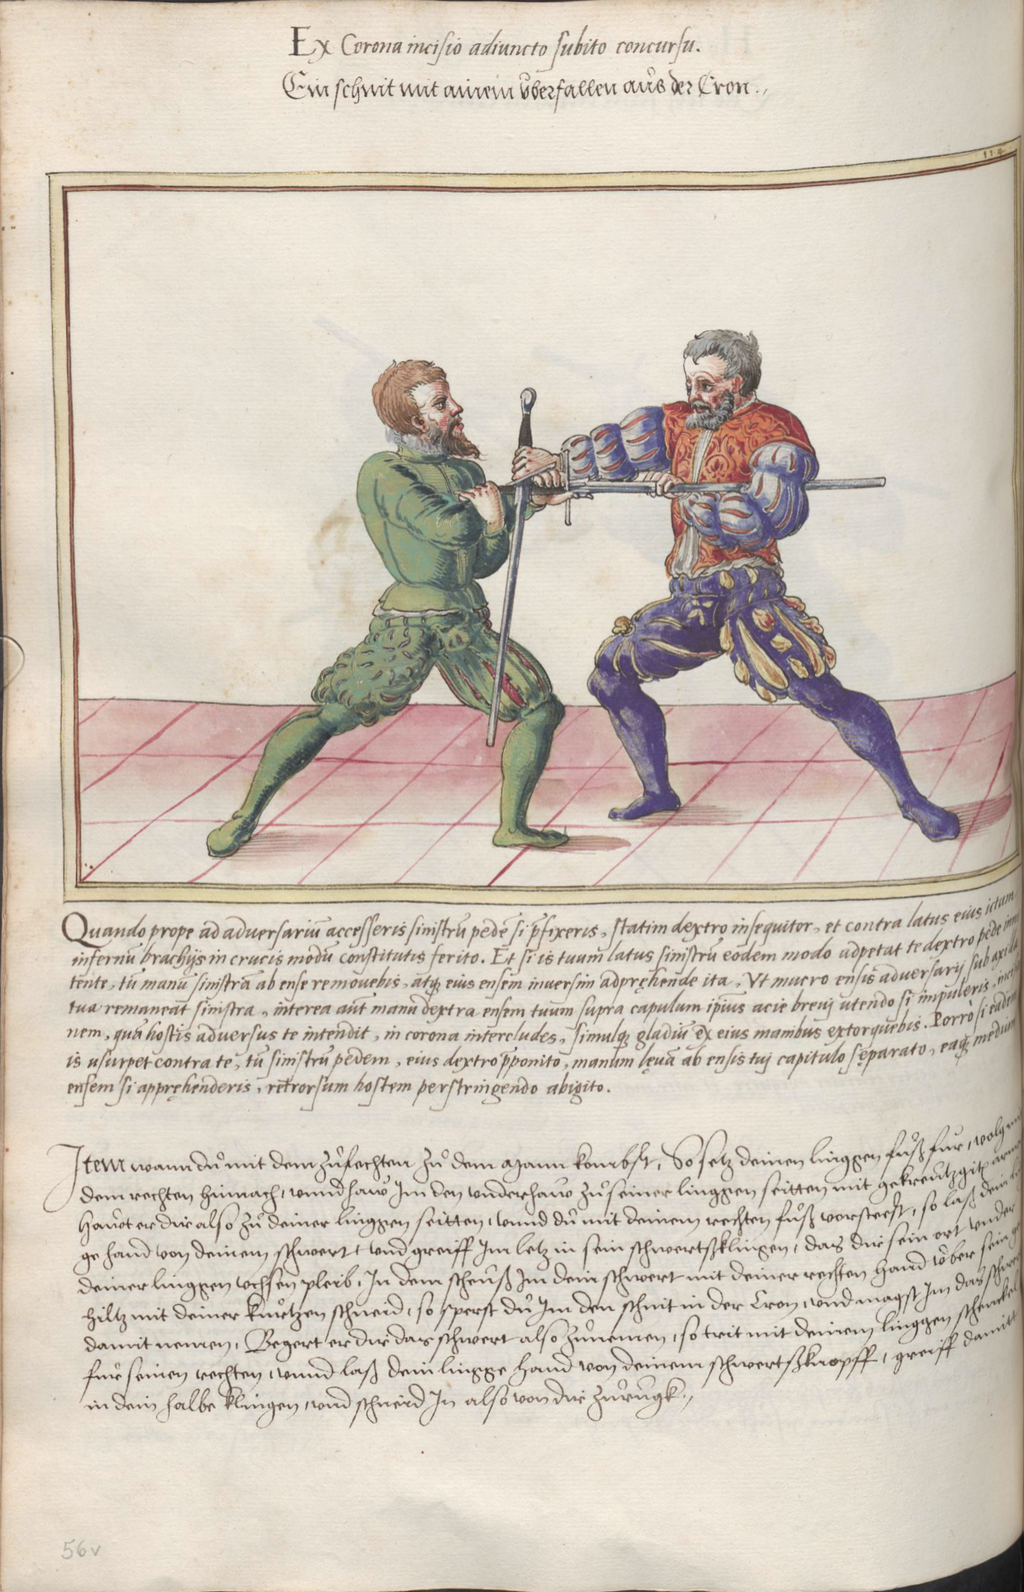 Ex Corona incisio adiuncto subito concursu.
Ein schnit mit ainem überfallen aus der Cron.
114
Quando prope ad adversariũ accesseris sinistrũ pedẽ si p̃fixeris, statim dextro insequitor, et contra latus eius
infernũ brachijs in crucis modũ constitutis ferito. Et si is tuum latus sinistrũ eodem modo adpetat te dextro pede
tente, tũ manũ sinistrã ab ense removebis, atq; eius ensem inversim adprȩhende ita, Vt mucro ensis adversarij sub axilla
tua remaneat sinistra, interea aũt manũ dextra ensem tuum supra capulum ipius acie brevj utendo si impuleris,
nem, quã hostis adversus te intendit, in corona intercludes, simulq; gladiũ ex eius manibus extorquebis. Porrò si eadem
is usurpet contra te, tũ sinistrũ pedem, eius dextro p̃ponito, manum lȩvã ab ensis tuj capitulo sȩparato, eaq; medium
ensem si apprȩhenderis, retrorsum hostem perstringendo abigito.
Item wann du mit dem zufechten zu dem Mann kombst, So setz deinen linggen fuß fur, volg
dem rechten hinnach, unnd haw Im den underhaw zu seiner linggen seitten mit gekreutzgit
Hawet er dir also zu deiner linggen seitten, unnd du mit deinem rechten fuß vorsteest, so laß dein
ge hand von deinem schwert und greiff Im letz in sein schwertsklingen, das dir sein ort under
deiner linggen Uchsen pleib, In dem scheuß Im dein schwert mit deiner rechten hand uber sein
hiltz mit deiner kurtzen schneid, so sperst du Im den schnit in der Cron, und magst Im das schwert
damit nemen, Begert er dir das schwert also zunemen, so trit mit deinem linggen schenckel
fur seinen rechten, unnd laß dein lingge hand von deinem schwertsknopff, greiff damit
in dein halbe klingen, und schneid In also von dir zuruck.
56v